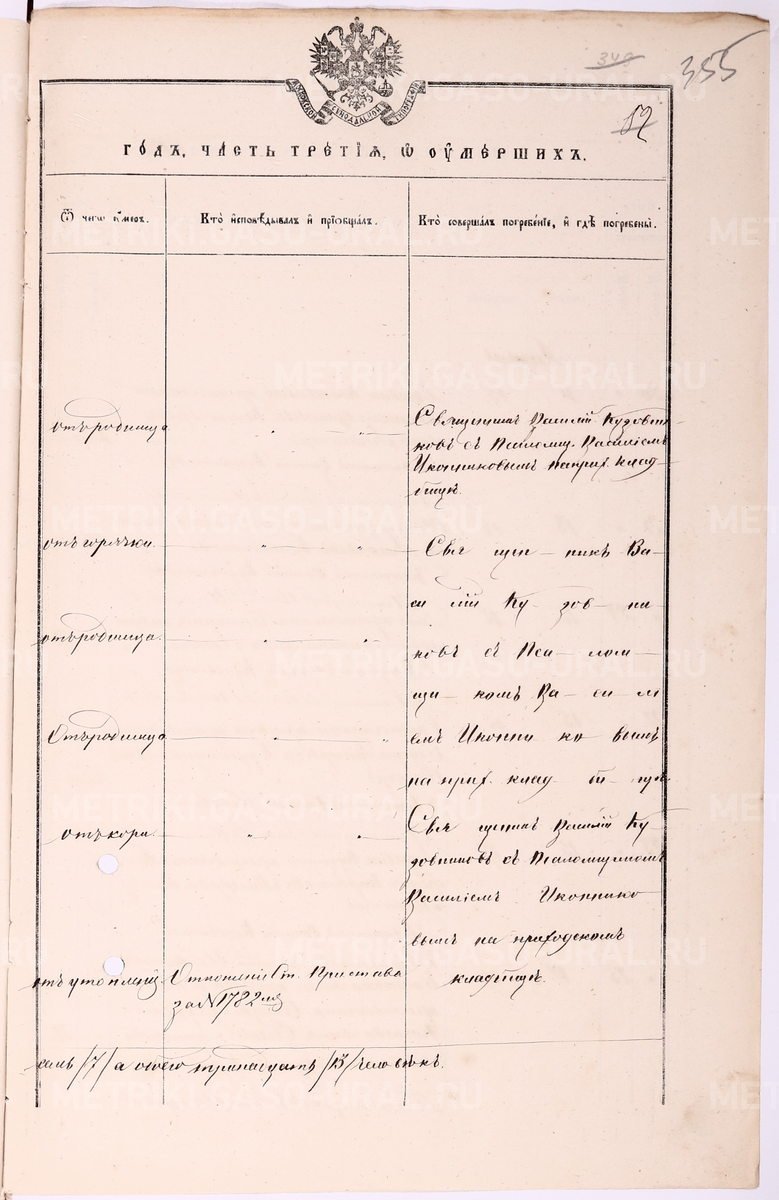 340
355
52
ГОДЪ, ЧАСТЬ ТРЕТІѦ, Ѡ ОУМЕРШИХЪ.
Ѿ чегѡ оумеръ.
Кто исповѣдывалъ и пріѡбщалъ.
Кто совершалъ погребеніе, и гдѣ погребены.
отъ родимца
Священникъ Василій Кузовни-
ковъ съ Псаломщ. Василіемъ
Иконниковымъ на прих. клад-
бищѣ.
отъ горячки
Свя щен – никъ Ва-
си лій Ку – зов – ни-
отъ родимца.
ковъ съ Пса – лом –
щи – комъ Ва – си лі
Отъ родимца
емъ Иконни ко вымъ
на прих. клад би щѣ.
отъ кори.
Свя щенникъ Василій Ку-
зовниковъ съ Псаломщикомъ
Василіемъ Иконнико
вымъ на приходскомъ
отъ утопленія. Отношеніе Ст. Пристава
кладбищѣ.
за № 1782
семь /7/ а обоего тринадцать /13/ человѣкъ.
METRIKI.GASO-URAL.RU